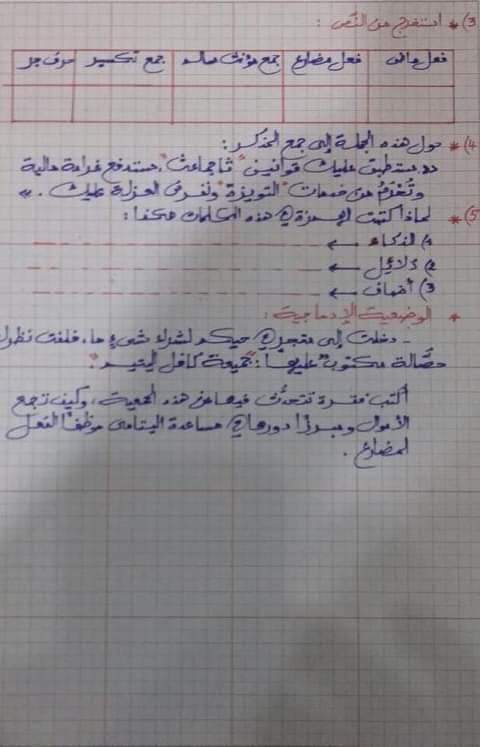 3) * أستخرج من النّص :
فعل ماض فعل مضارع جمع مؤنث سالم جمع تكسير حرف جر
4) * حول هذه الجملة إلى جمع المذكر :
«ستطبق عليك قوانين "ثاجماعث"، ستدفع غرامة مالية
وتُحْرَمُ من خدمات "التويزة" ونفرض العزلة عليك . »
5) * لماذا كتبت الهمزة في هذه الكلمات هكذا :
1) الذكاء ←
2) دلائل ←
3) أضاف ←
* الوضعية الإدماجية :
- دخلت إلى متجر في حيكم لشراء شيءٍ ما، فلفت نظرك
حصّالة مكتوب عليها : "جمعية كافل اليتيم".
أكتب فقرة تتحدّث فيها عن هذه الجمعية، وكيف تجمع
الأموال ومبرزا دورها في مساعدة اليتامى موظفا الفعل
المضارع .